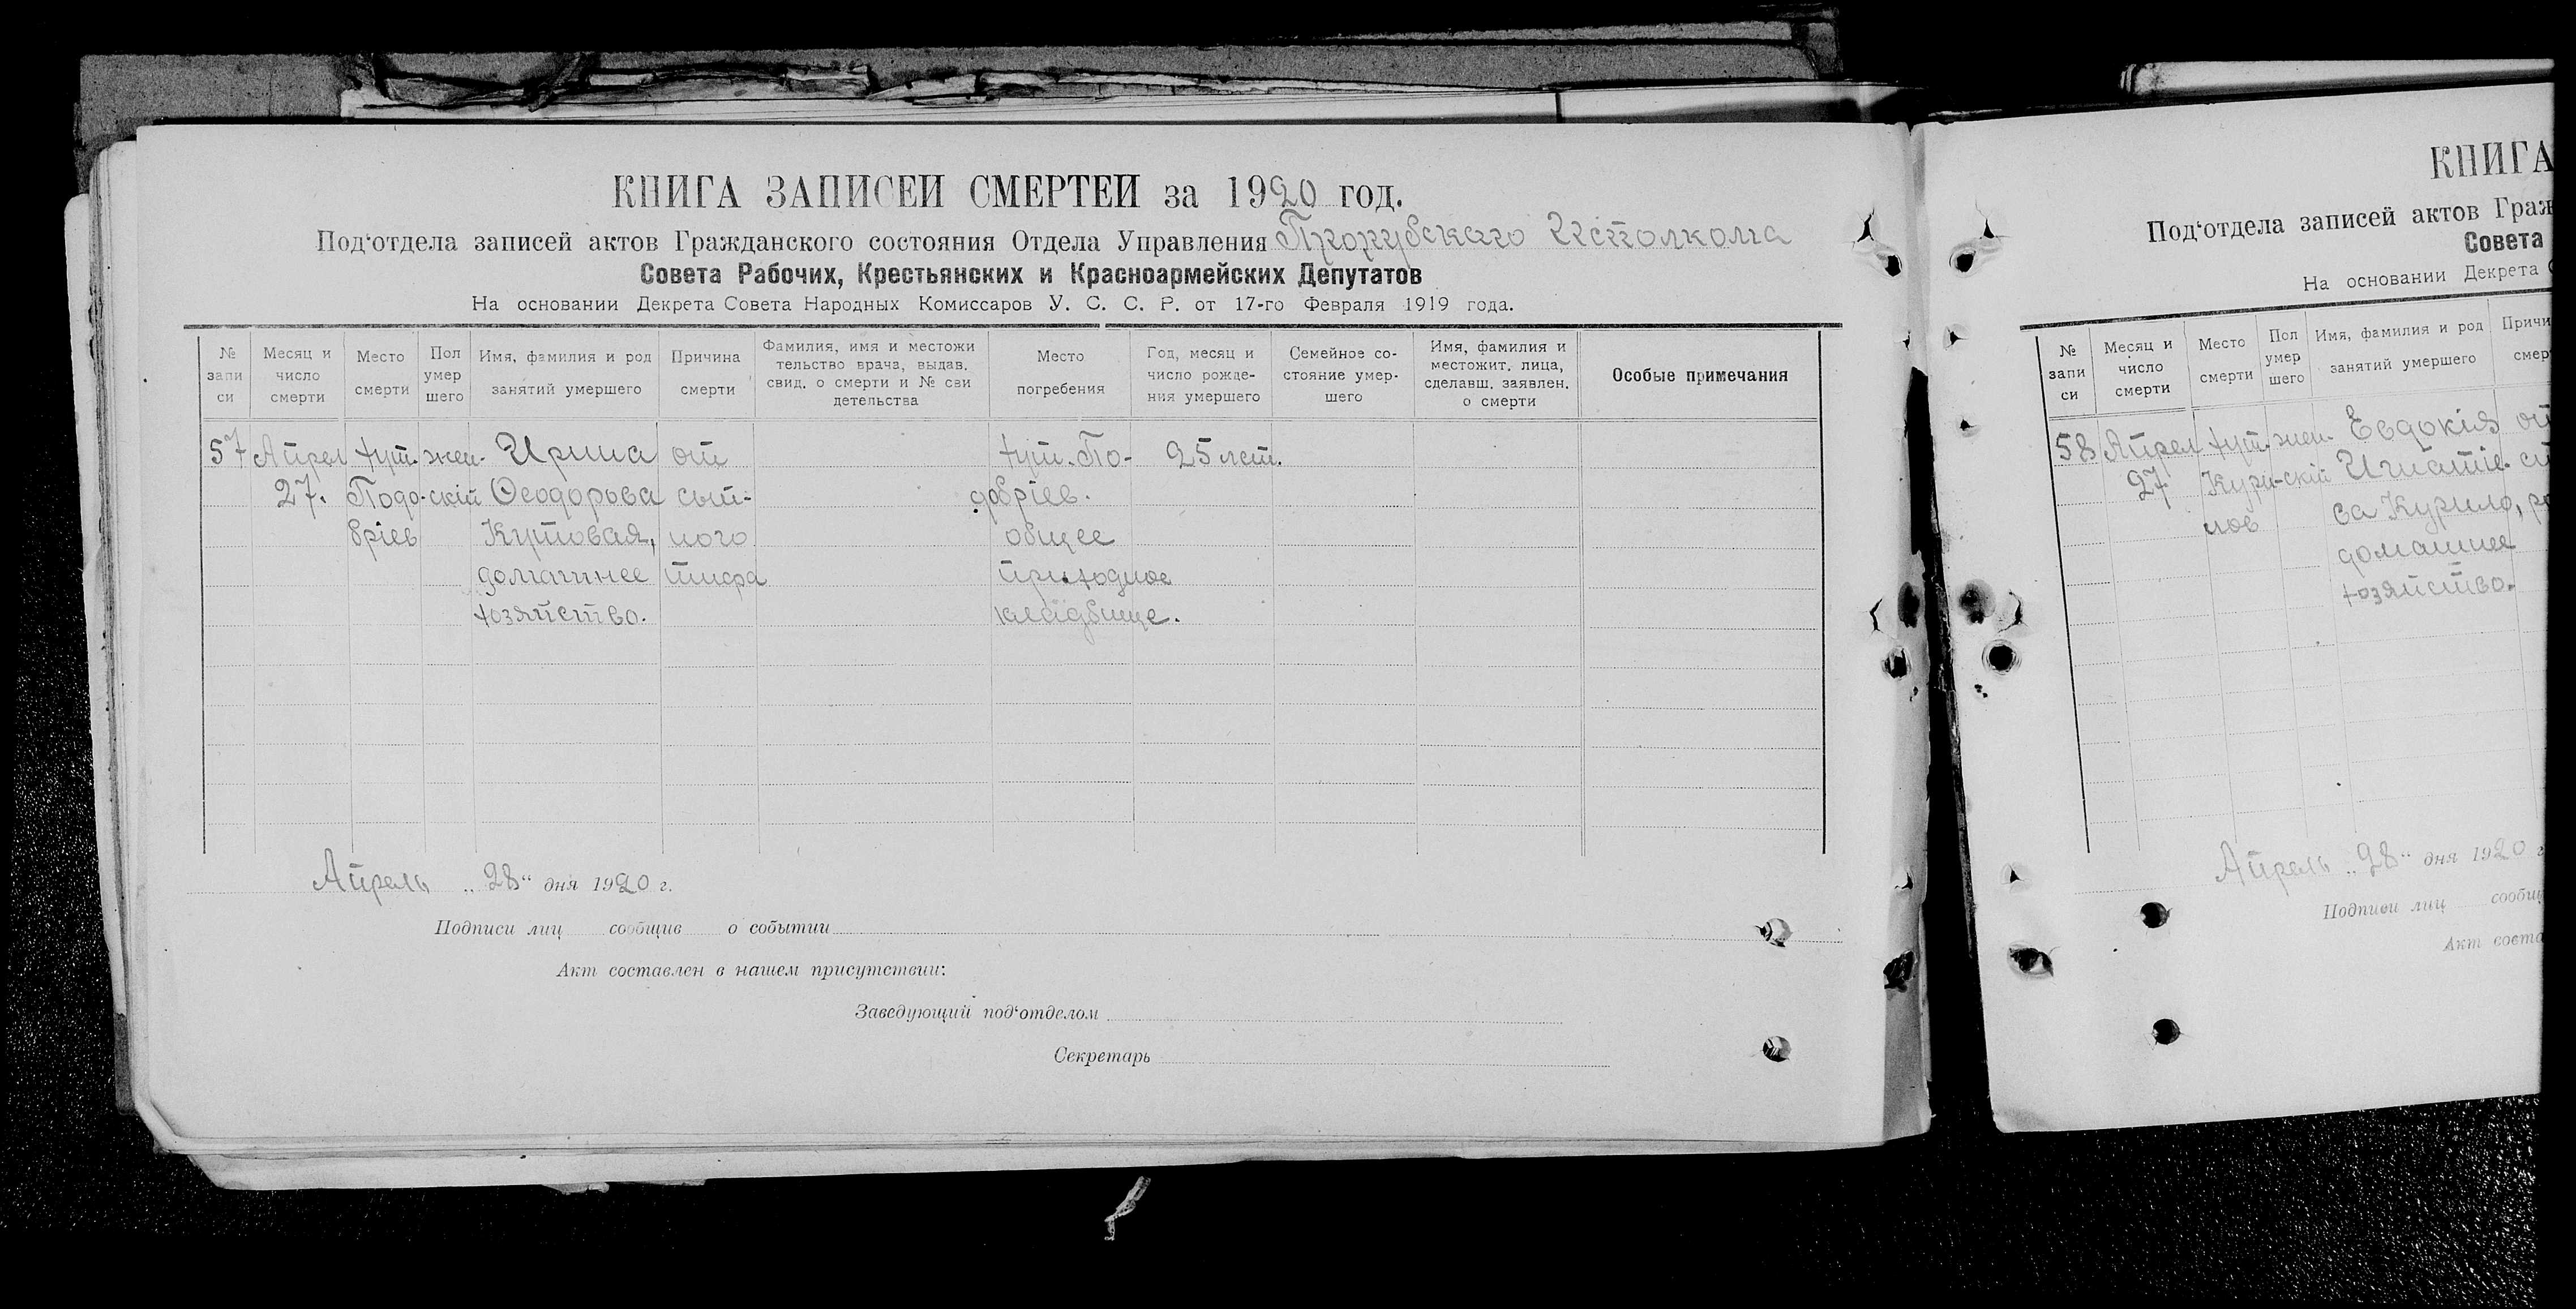 КНИГА ЗАПИСЕЙ СМЕРТЕЙ за 1920 год.
Под‘отдела записей актов Гражданского состояния Отдела Управления Исполкома
Совета Рабочих, Крестьянских и Красноармейских Депутатов
На основании Декрета Совета Народных Комиссаров У. С. С. Р. от 17-го Февраля 1919 года.
№ запи си
Месяц и число смерти
Место смерти
Пол умер шего
Имя, фамилия и род занятий умершего
Причина смерти
Фамилия, имя и местожи тельство врача, выдав. свид. о смерти и № сви детельства
Место погребения
Год, месяц и число рожде- ния умершего
Семейное со- стояние умер- шего
Имя, фамилия и местожит. лица, сделавш. заявлен. о смерти
Особые примечания
57 Апрел хут. жен- Ирина от хут. По- 25 лет.
27. Подо- скій Ѳеодорова сып- добріев.
бріев Кутовая, ного общее
домашнее тифа приходное
хозяйство. кладбище.
Апрель „28“ дня 1920 г.
Подписи лиц сообщив о событии
Акт составлен в нашем присутствии:
Заведующий под‘отделом
Секретарь
КНИГА
Под‘отдела записей актов Граж
Совета
На основании Декрета С
№ запи си
Месяц и число смерти
Место смерти
Пол умер шего
Имя, фамилия и род занятий умершего
Причи смер
58 Апрел хут. жен- Евдокія от
27 Кури- скій Игнатіе- сы
лов ва Курило,
домашнее
хозяйство.
Апрель „28“ дня 1920 г
Подписи лиц сообщ
Акт соста